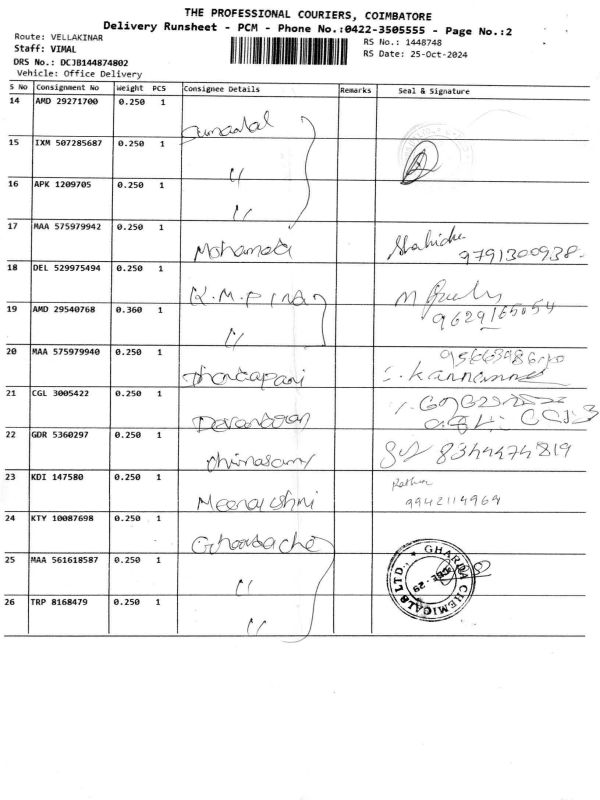 THE PROFESSIONAL COURIERS, COIMBATORE
Delivery Runsheet - PCM - Phone No.:0422-3505555 - Page No.:2
Route: VELLAKINAR
RS No.: 1448748
Staff: VIMAL
RS Date: 25-Oct-2024
DRS No.: DCJB144874802
Vehicle: Office Delivery
S No Consignment No Weight PCS Consignee Details Remarks Seal & Signature
14 AMD 29271700 0.250 1
15 IXM 507285687 0.250 1 "
16 APK 1209705 0.250 1 "
17 MAA 575979942 0.250 1 Mohamed
9791300938
18 DEL 529975494 0.250 1 K.M.P
19 AMD 29540768 0.360 1 "
9629165054
20 MAA 575979940 0.250 1
21 CGL 3005422 0.250 1
22 GDR 5360297 0.250 1 8344474819
23 KDI 147580 0.250 1
9942114964
24 KTY 10087698 0.250 1
25 MAA 561618587 0.250 1 "
GHARDA CHEMICALS LTD.
26 TRP 8168479 0.250 1 "